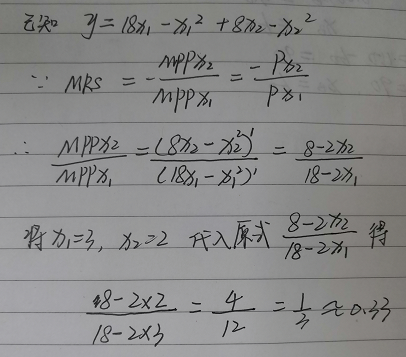 已知 y = 18x₁ - x₁² + 8x₂ - x₂²
∵ MRS = -MPPx₂/MPPx₁ = -Px₂/Px₁
∴ MPPx₂/MPPx₁ = (8x₂ - x₂²)'/(18x₁ - x₁²)' = (8-2x₂)/(18-2x₁)
将 x₁=3, x₂=2 代入原式 (8-2x₂)/(18-2x₁) 得
(8-2×2)/(18-2×3) = 4/12 = 1/3 ≈ 0.33